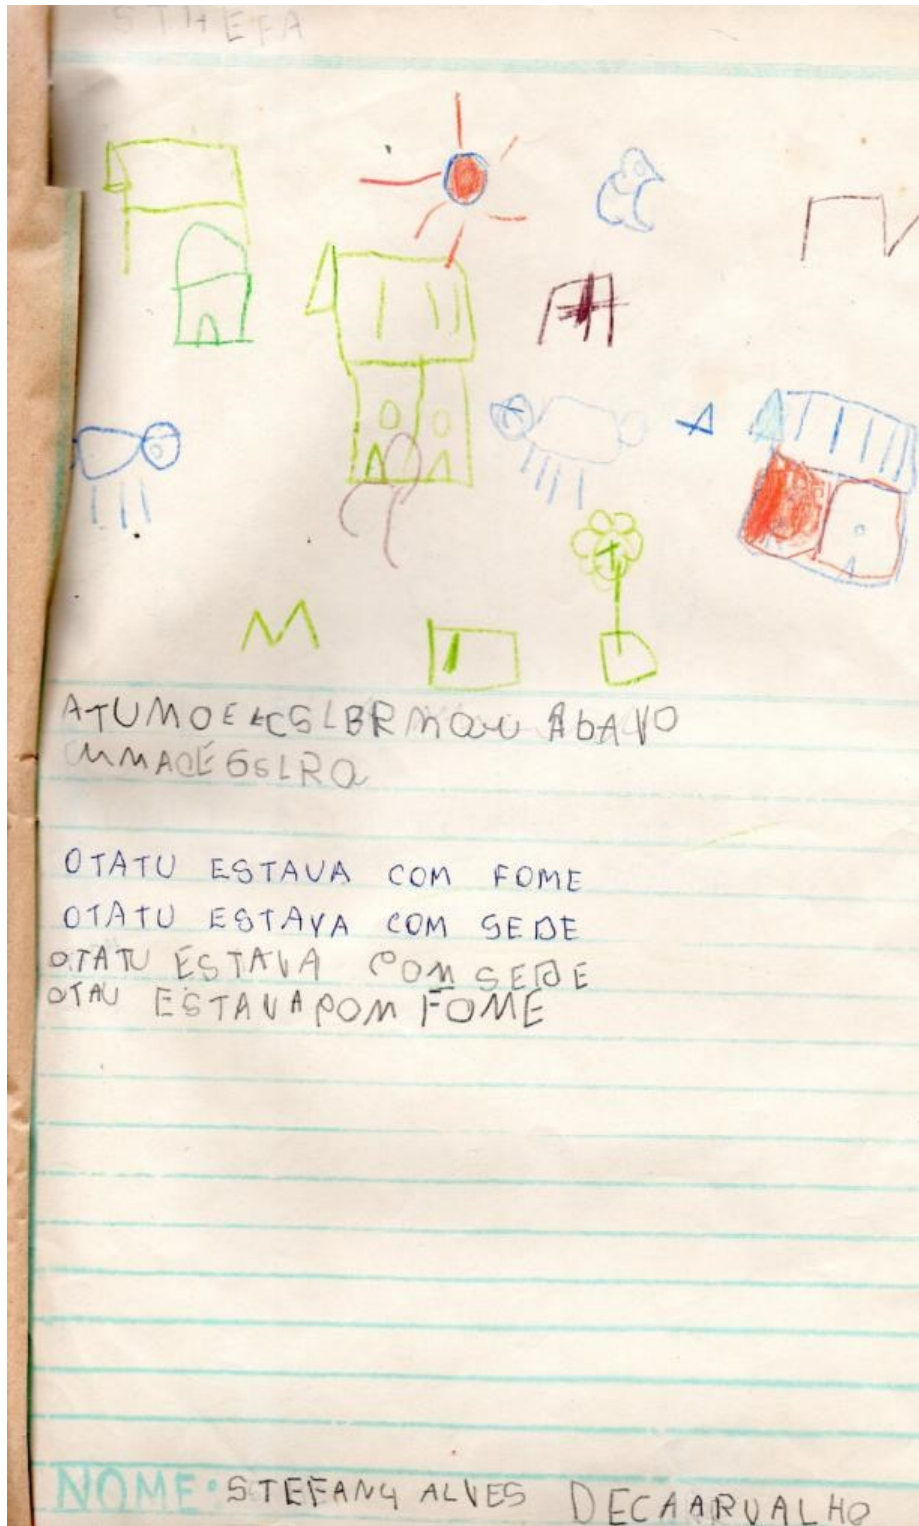 STHEFA
ATUMOE ECSLBRMQU ABAVO
MMACEGSLRQ
OTATU ESTAVA COM FOME
OTATU ESTAVA COM SEDE
OTATU ESTAVA COM SEDE
OTAU ESTAVA POM FOME
NOME: STEFANY ALVES DECAARVALHO